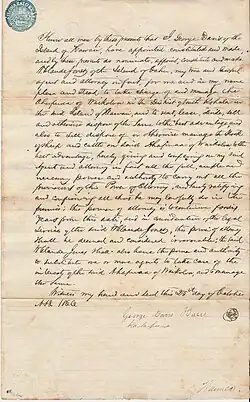 Know all men by these presents that I George Davis of the
Island of Hawaii, have appointed constituted and made,
and by these presents do nominate, appoint, constitute and make
of the Island of Oahu, my true and lawful
agent and attorney in fact, for me and in my name
place and stead to take charge of and manage the
Ahupuaa of Waikoloa in the District of South Kohala in
the said Island of Hawaii and to rent, lease, divide, sell
and otherwise dispose of the same to the best advantage and
also to sell, dispose of or otherwise manage the stock
of sheep and cattle on said Ahupuaa of Waikoloa to the
best advantage, hereby giving and conferring on my said
agent and attorney in fact all the full and
necessary power and authority to carry out all the
provisions of this Power of Attorney, and hereby ratifying
and confirming all that he may lawfully do in the
premises, this power of attorney to continue for
years from this date, and in consideration of the
services of the said this power of attorney
shall be deemed and considered irrevocable; the said
shall also have the power and authority
to substitute one or more agents to take care of the
interests of the said Ahupuaa of Waikoloa, and to manage
the same.
Witness my hand and seal this 24th day of October
A.D. 186
George Davis Hueu